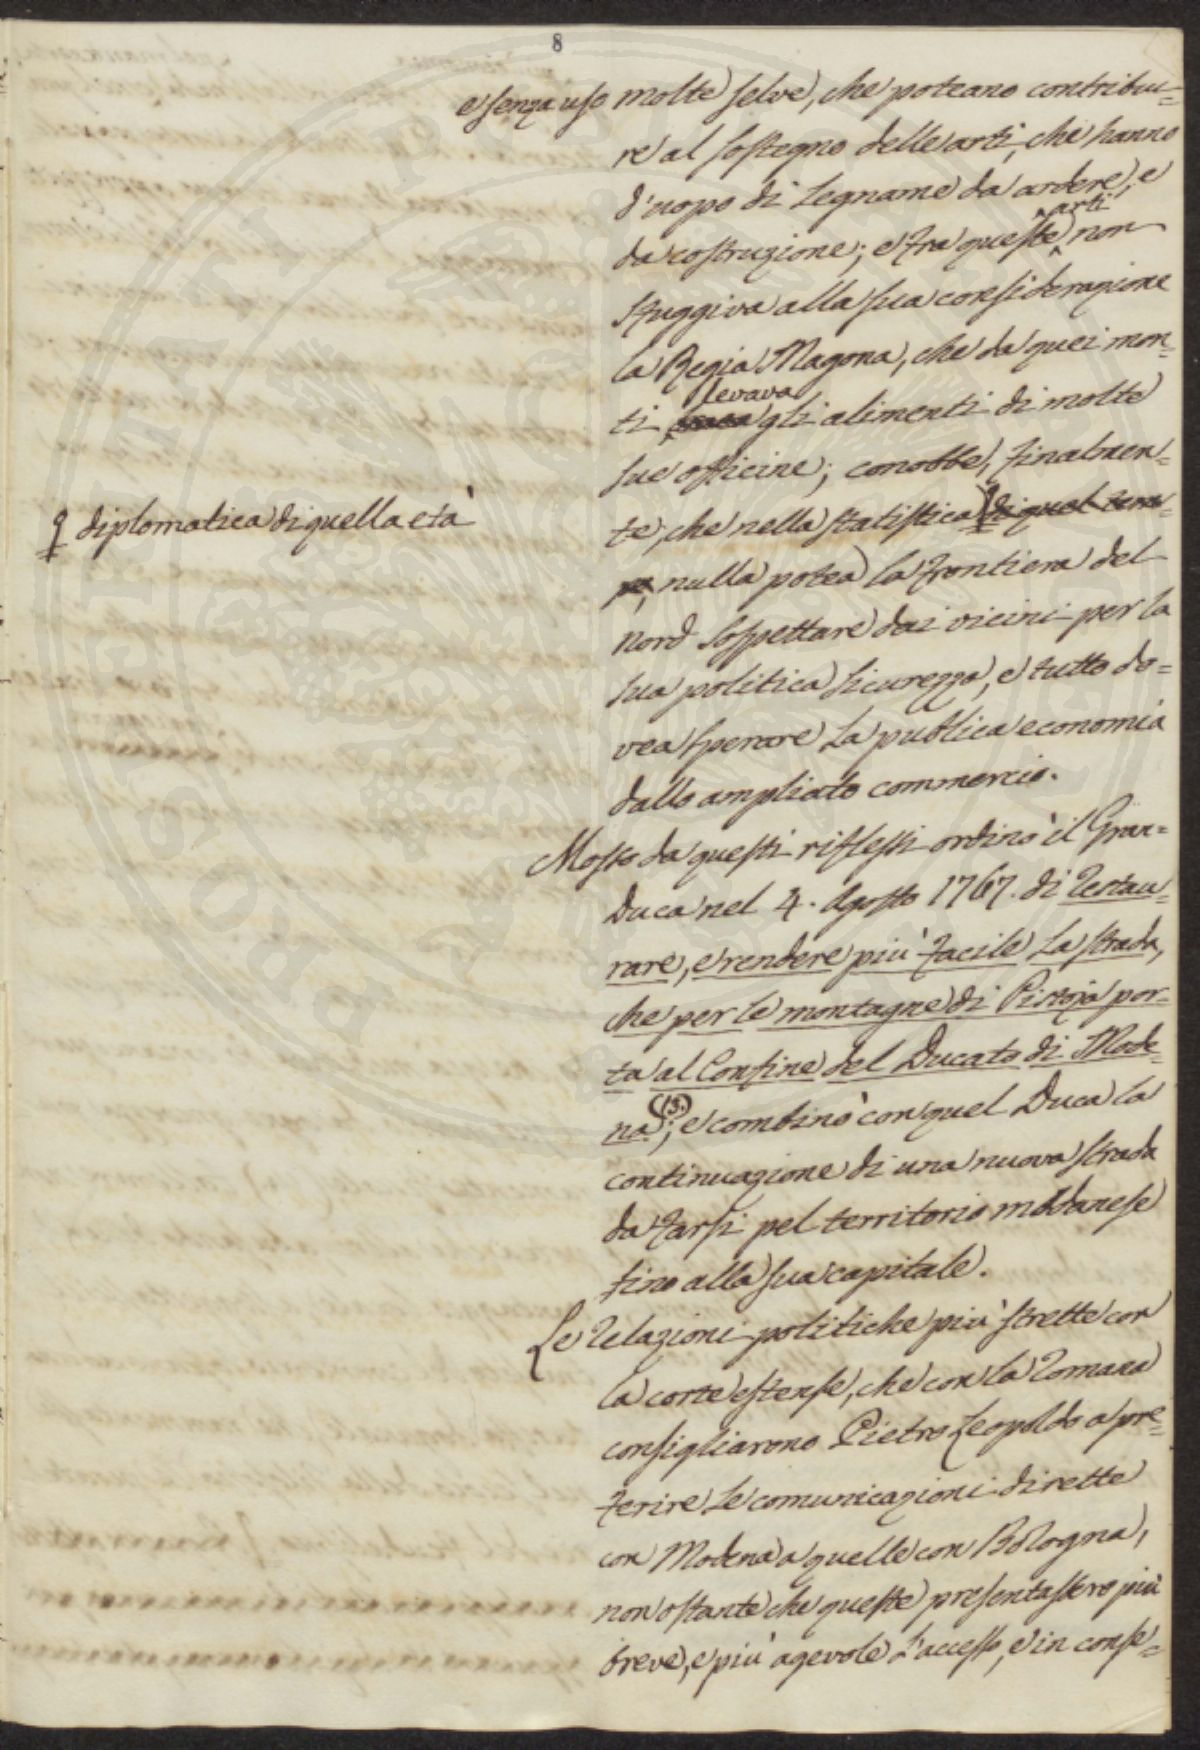 8
e senza uso molte selve, che poteano contribui=
re al sostegno delle arti, che hanno
d'uopo di legname da ardere, e
da costruzione; e fra queste arti non
sfuggiva alla sua considerazione
la Regia Magona, che da quei mon=
ti levava gli alimenti di molte
sue officine; conobbe, finalmen=
te, che nella statistica di quel tem=
po, nulla potea la frontiera del
diplomatica di quella età
nord sospettare dai vicini per la
sua politica sicurezza, e tutto do=
vea sperare la publica economia
dallo ampliato commercio.
Mosso da questi riflessi ordinò il Gran=
Duca nel 4. Agosto 1767. di restau=
rare, e rendere più facile la strada,
che per le montagne di Pistoja por=
ta al Confine del Ducato di Mode=
na (3.); e combinò con quel Duca la
continuazione di una nuova strada
da farsi pel territorio modanese
fino alla sua capitale.
Le relazioni politiche più strette con
la corte estense, che con la romana
consigliarono Pietro Leopoldo a pre=
ferire le comunicazioni dirette
con Modena a quelle con Bologna,
non ostante che queste presentassero più
breve, e più agevole l'accesso, e in conse=